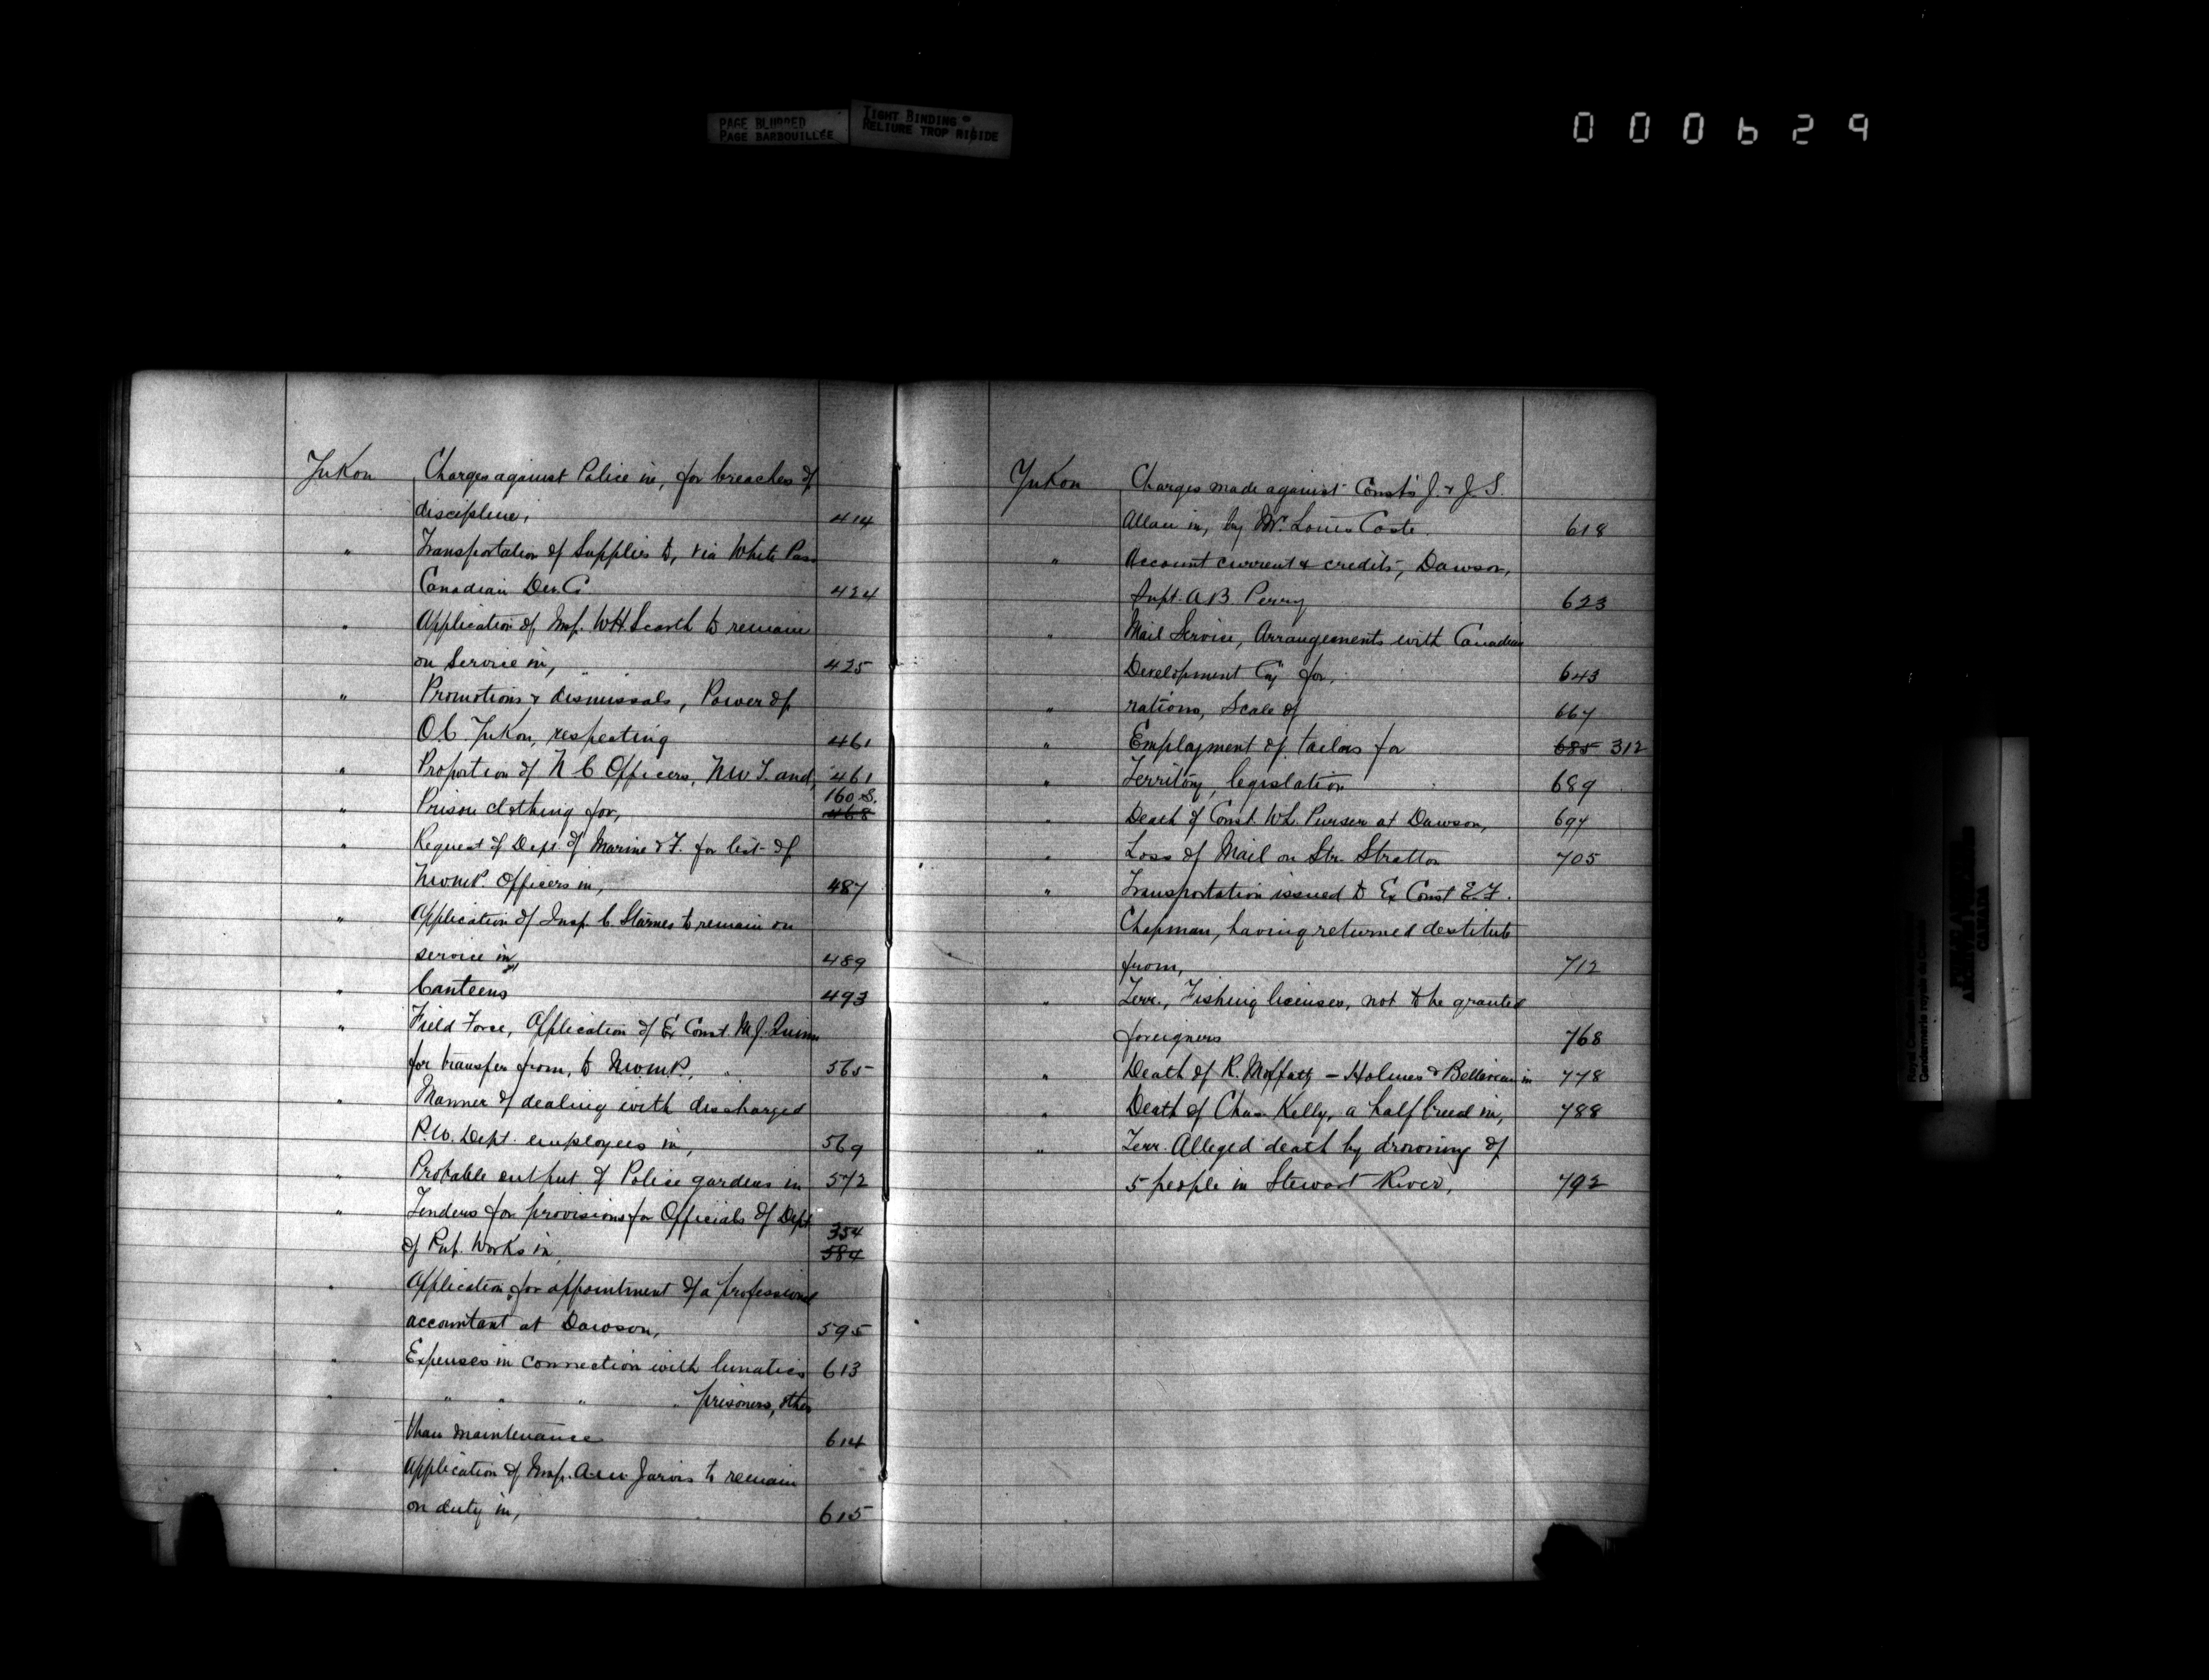 PAGE BLURRED
PAGE BARBOUILLÉE
TIGHT BINDING
RELIURE TROP RIGIDE
000629
Yukon Charges against Police in, for breaches of
discipline, 414
" Transportation of Supplies to, via White Pass
Canadian Dev. Co. 424
" Application of Insp. W.H. Scarth to remain
on Service in, 425
" Promotions & dismissals, Power of
O.C. Yukon, respecting 461
" Proportion of N C Officers, N.W.T. and, 461
" Prison clothing for, 160 S. 468
" Request of Dept. of Marine & F. for list of
N.W.M.P. Officers in, 487
" Application of Insp. C. Starnes to remain on
service in, 489
" Canteens 493
" Field Force, Application of Ex Const. M.J. Quinn
for transfer from, to N.W.M.P., 565
" Manner of dealing with discharged
P.W. Dept. employees in, 569
" Probable output of Police gardens in 572
" Tenders for provisions for Officials of Dept
of Pub. Works in 354 584
" Application for appointment of a professional
accountant at Dawson, 595
" Expenses in connection with lunatics 613
" " " " " prisoners, other
than maintenance 614
" Application of Insp. A.M. Jarvis to remain
on duty in, 615
Yukon Charges made against Const's J. & J.S.
Allan in, by Mr. Louis Coste. 618
" Account current & credits, Dawson,
Supt. A.B. Perry 623
" Mail Service, Arrangements with Canadian
Development Coy for, 643
" rations, Scale of 667
" Employment of tailors for 685 312
" Territory, legislation 689
" Death of Const. W.L. Purser at Dawson, 697
" Loss of Mail on Str. Stratton 705
" Transportation issued to Ex Const E.F.
Chapman, having returned destitute
from, 712
" Terr., Fishing licenses, not to be granted
foreigners 768
" Death of R. Moffatt – Holmes & Belliveau in 778
" Death of Chas. Kelly, a half breed in, 788
" Terr. Alleged death by drowning of
5 people in Stewart River, 792